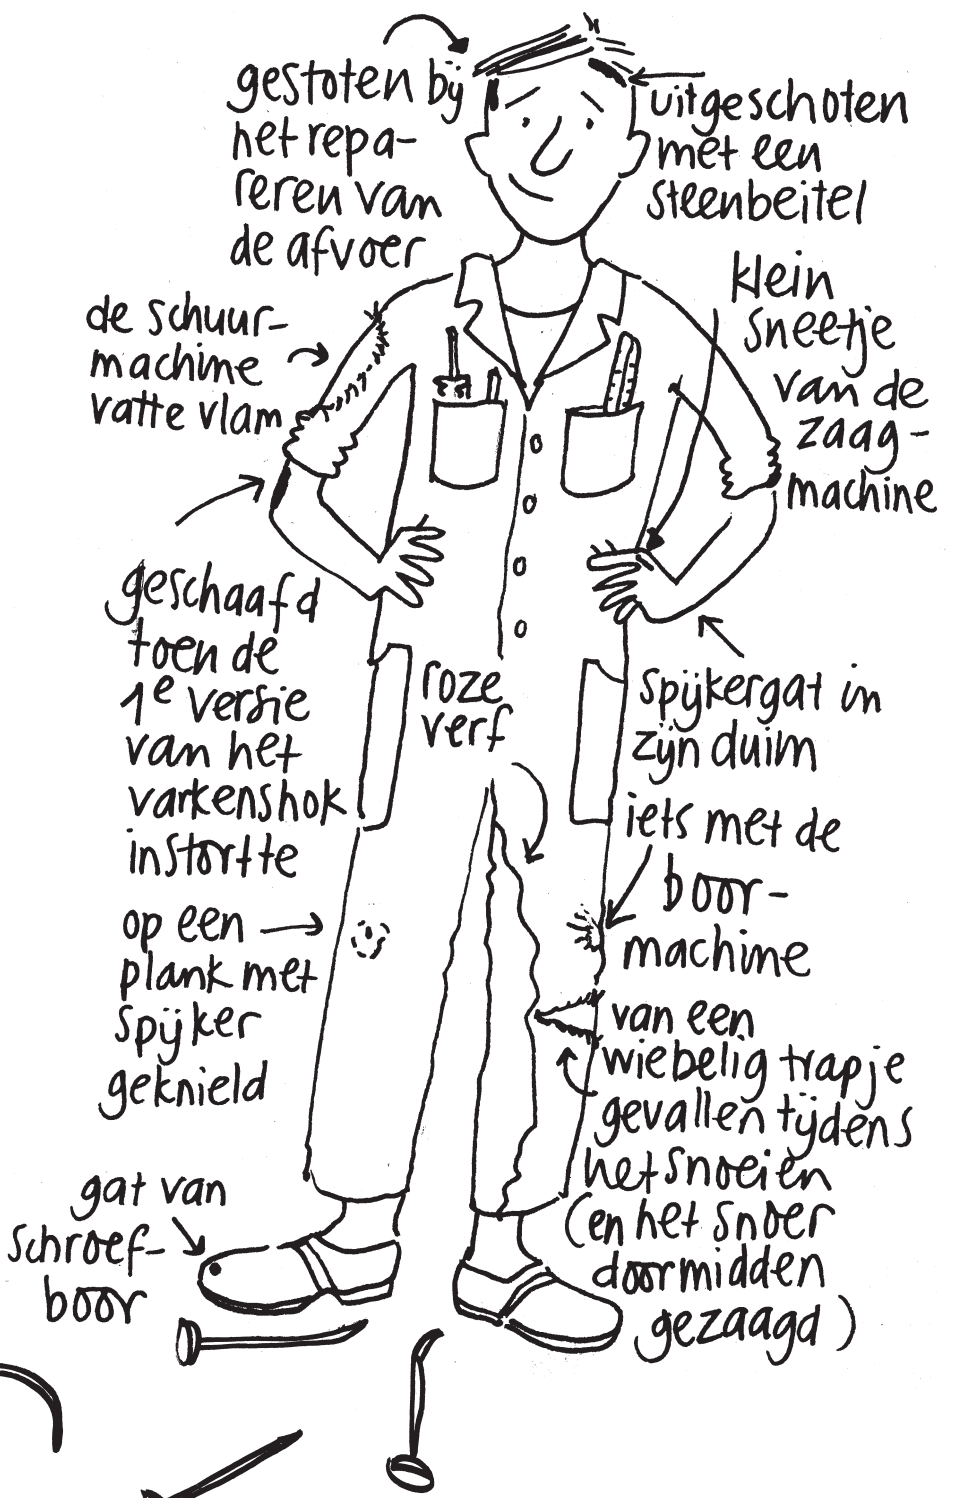 gestoten bij
het repa-
reren van
de afvoer
uitgeschoten
met een
steenbeitel
de schuur-
machine
vatte vlam
klein
sneetje
van de
zaag-
machine
geschaafd
toen de
1e versie
van het
varkenshok
instortte
roze
verf
spijkergat in
zijn duim
iets met de
boor-
machine
op een
plank met
spijker
geknield
van een
wiebelig trapje
gevallen tijdens
het snoeien
(en het snoer
doormidden
gezaagd)
gat van
schroef-
boor